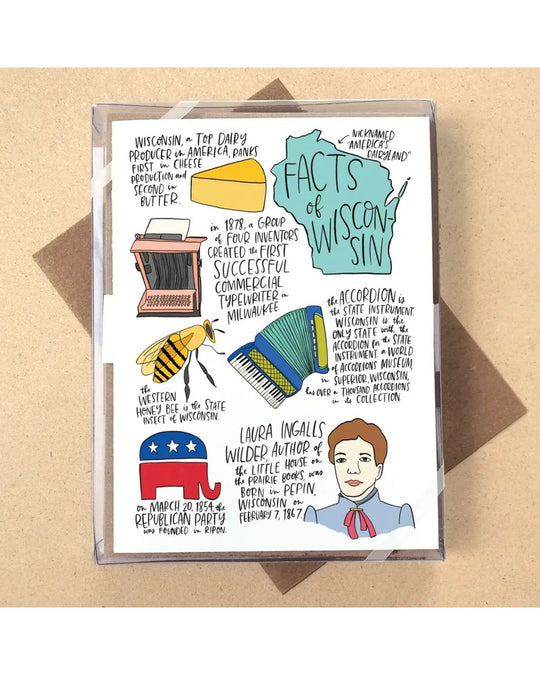 WISCONSIN, a TOP DAIRY
PRODUCER in AMERICA, RANKS
FIRST in CHEESE
PRODUCTION and
SECOND in
BUTTER.
NICKNAMED
"AMERICA'S
DAIRYLAND"
FACTS
of
WISCON-
SIN
in 1878, a GROUP
of FOUR INVENTORS
CREATED the FIRST
SUCCESSFUL
COMMERCIAL
TYPEWRITER in
MILWAUKEE
the ACCORDION is
the STATE INSTRUMENT.
WISCONSIN is the
ONLY STATE with the
ACCORDION for the STATE
INSTRUMENT. a WORLD
of ACCORDIONS MUSEUM
in SUPERIOR, WISCONSIN,
HAS OVER a THOUSAND ACCORDIONS
in its COLLECTION
the
WESTERN
HONEY BEE is the STATE
INSECT of WISCONSIN.
LAURA INGALLS
WILDER, AUTHOR of
the LITTLE HOUSE on
the PRAIRIE BOOKS, was
BORN in PEPIN,
WISCONSIN on
FEBRUARY 7, 1867.
on MARCH 20, 1854, the
REPUBLICAN PARTY
was FOUNDED in RIPON.